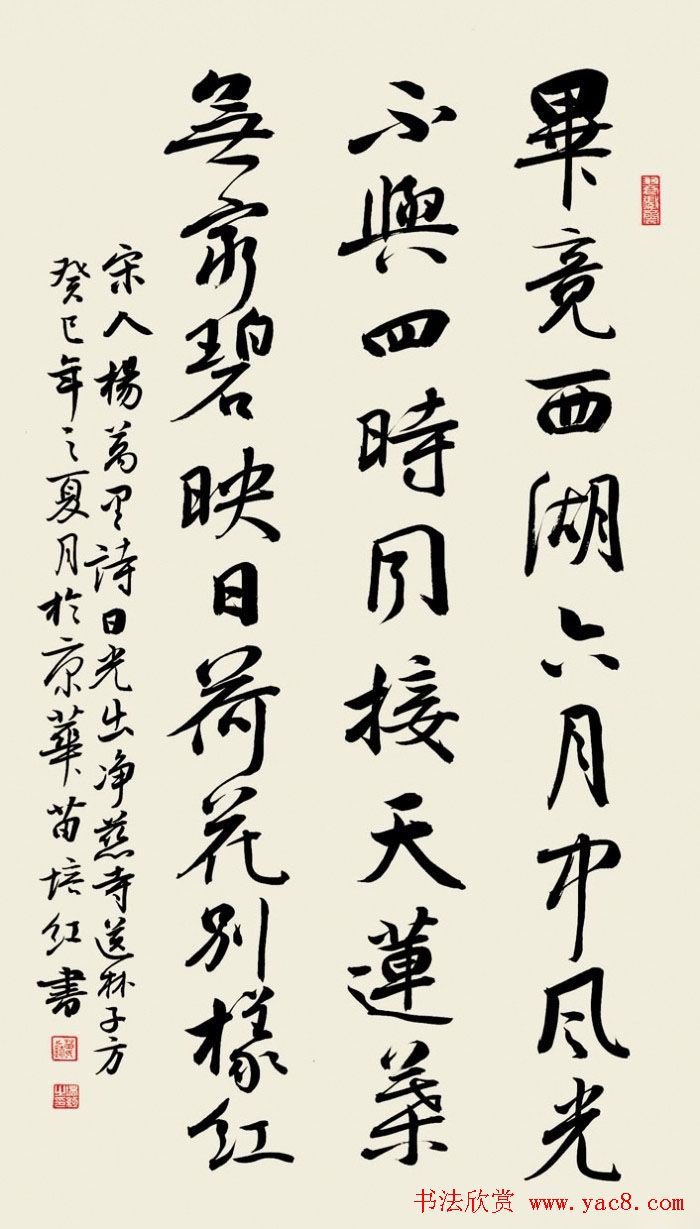 畢竟西湖六月中风光
不與四時同接天蓮葉
無窮碧映日荷花別樣紅
宋人楊萬里詩日光出净慈寺送林子方
癸巳年之夏月於京華苗培紅書
书法欣赏 www.yac8.com